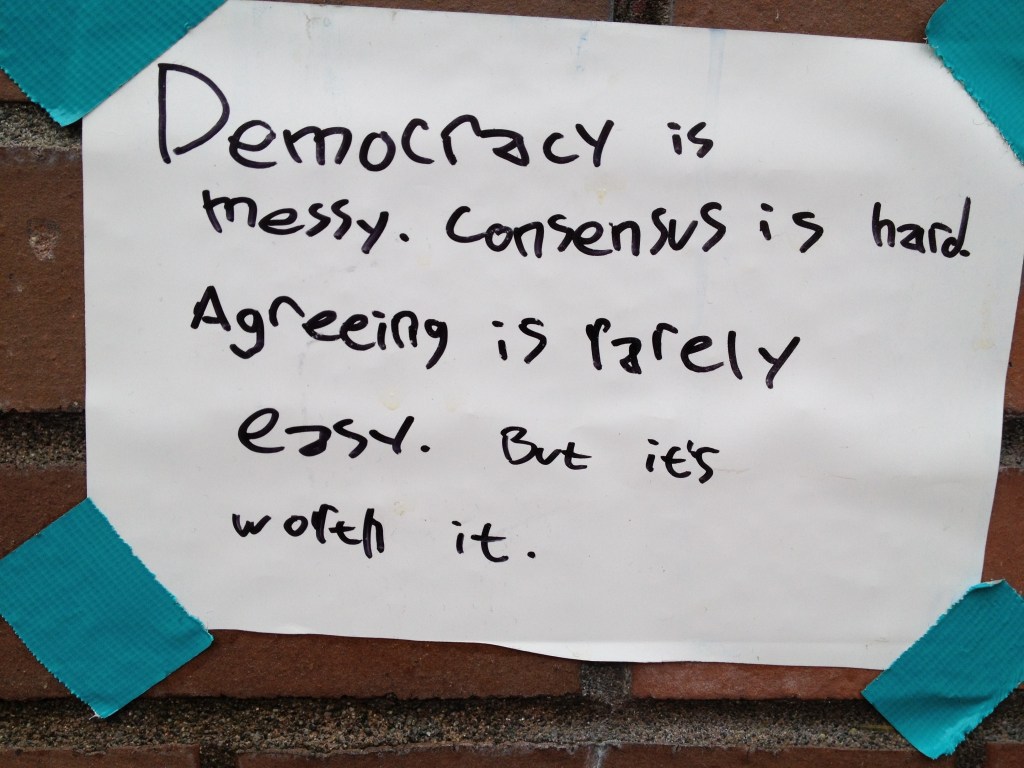 Democracy is
messy. Consensus is hard.
Agreeing is rarely
easy. But it's
worth it.